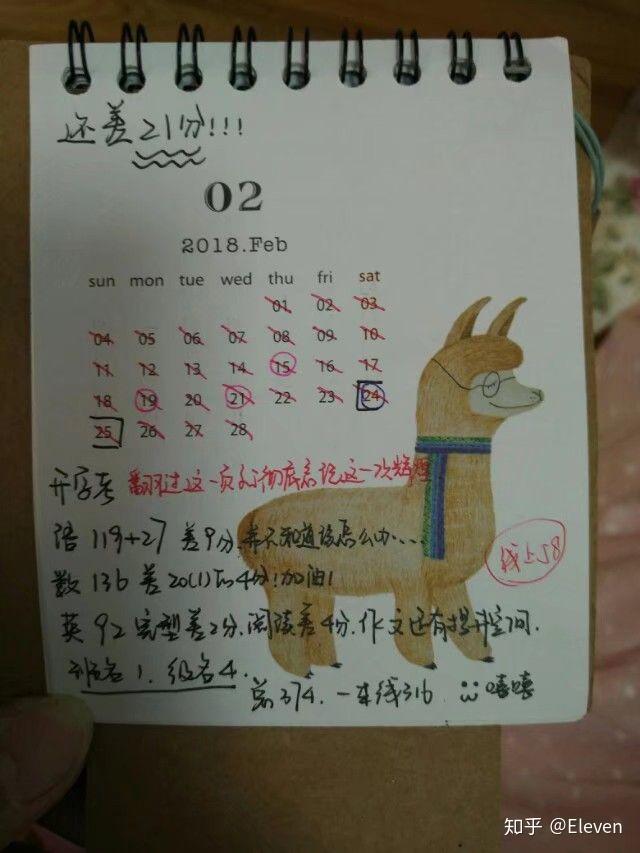 还差21分!!!
02
2018.Feb
sun mon tue wed thu fri sat
01 02 03
04 05 06 07 08 09 10
11 12 13 14 15 16 17
18 19 20 21 22 23 24
25 26 27 28
开学考 翻过这一页,彻底忘记这一次辉煌
语 119+27 差9分,并不知道该怎么办....
数 136 差20(1)的4分!加油!
线上58
英 92 完型差2分,阅读差4分,作文还有提升空间.
班名1. 级名4.
总374. 一本线316. 嘻嘻
知乎 @Eleven